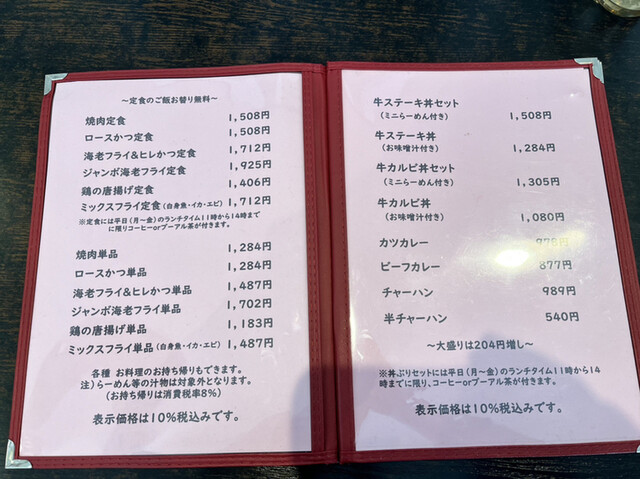 ~定食のご飯お替り無料~
焼肉定食 1,508円
ロースかつ定食 1,508円
海老フライ&ヒレかつ定食 1,712円
ジャンボ海老フライ定食 1,925円
鶏の唐揚げ定食 1,406円
ミックスフライ定食(白身魚・イカ・エビ) 1,712円
※定食には平日(月~金)のランチタイム11時から14時まで
に限りコーヒーorプーアル茶が付きます。
焼肉単品 1,284円
ロースかつ単品 1,284円
海老フライ&ヒレかつ単品 1,487円
ジャンボ海老フライ単品 1,702円
鶏の唐揚げ単品 1,183円
ミックスフライ単品(白身魚・イカ・エビ) 1,487円
各種 お料理のお持ち帰りもできます。
注)らーめん等の汁物は対象外となります。
(お持ち帰りは消費税率8%)
表示価格は10%税込みです。
牛ステーキ丼セット
(ミニらーめん付き) 1,508円
牛ステーキ丼
(お味噌汁付き) 1,284円
牛カルビ丼セット
(ミニらーめん付き) 1,305円
牛カルビ丼
(お味噌汁付き) 1,080円
カツカレー
ビーフカレー 877円
チャーハン 989円
半チャーハン 540円
~大盛りは204円増し~
※丼ぶりセットには平日(月~金)のランチタイム11時から14
時までに限り、コーヒーorプーアル茶が付きます。
表示価格は10%税込みです。